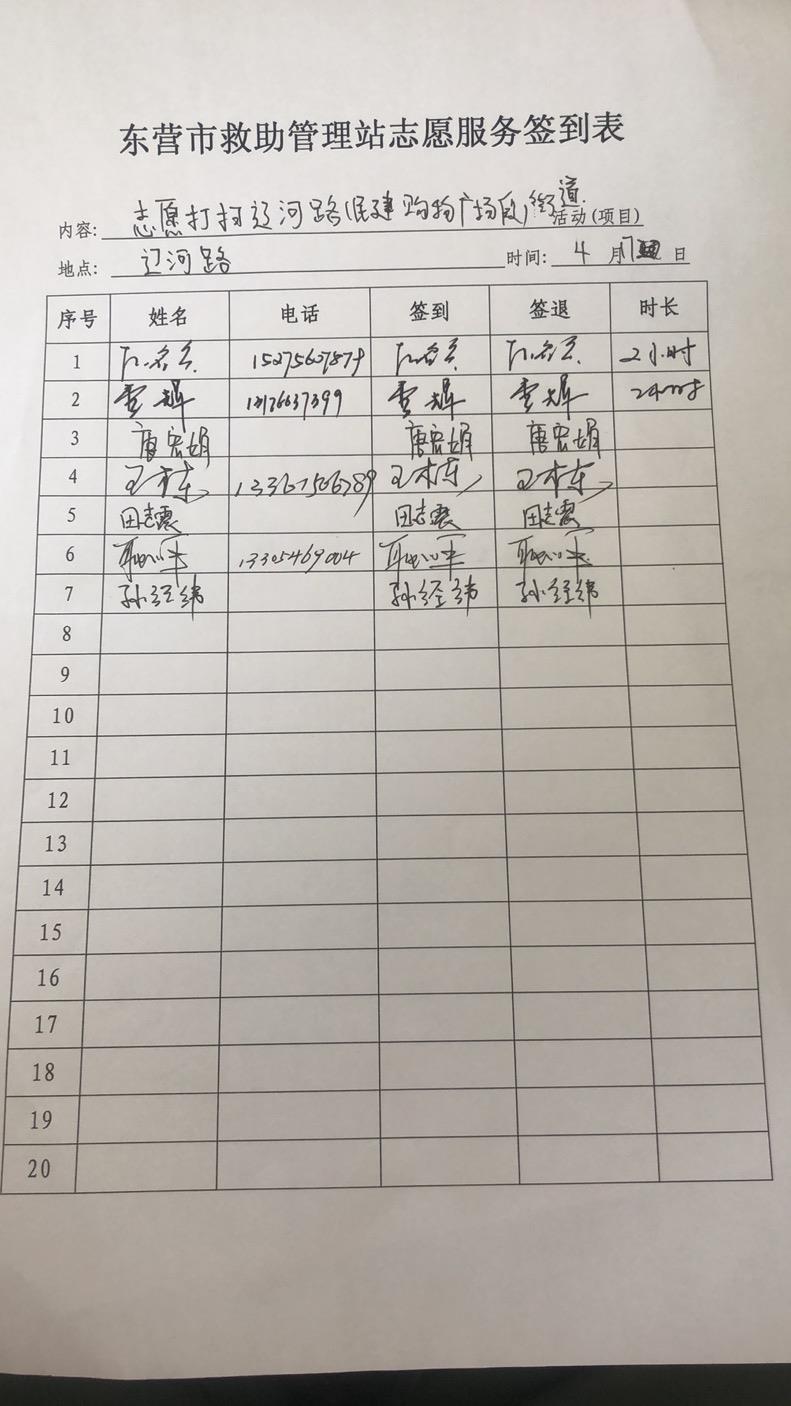 东营市救助管理站志愿服务签到表
内容: 志愿打扫辽河路(民建购物广场段)街道 活动(项目)
地点: 辽河路 时间: 4 月 17 日
序号 姓名 电话 签到 签退 时长
1 15275627879 2小时
2 13176637399 2小时
3 唐宏娟 唐宏娟 唐宏娟
4 王木东 13367566789 王木东 王木东
5 田志震 田志震 田志震
6 13305469004
7 孙经纬 孙经纬 孙经纬
8
9
10
11
12
13
14
15
16
17
18
19
20